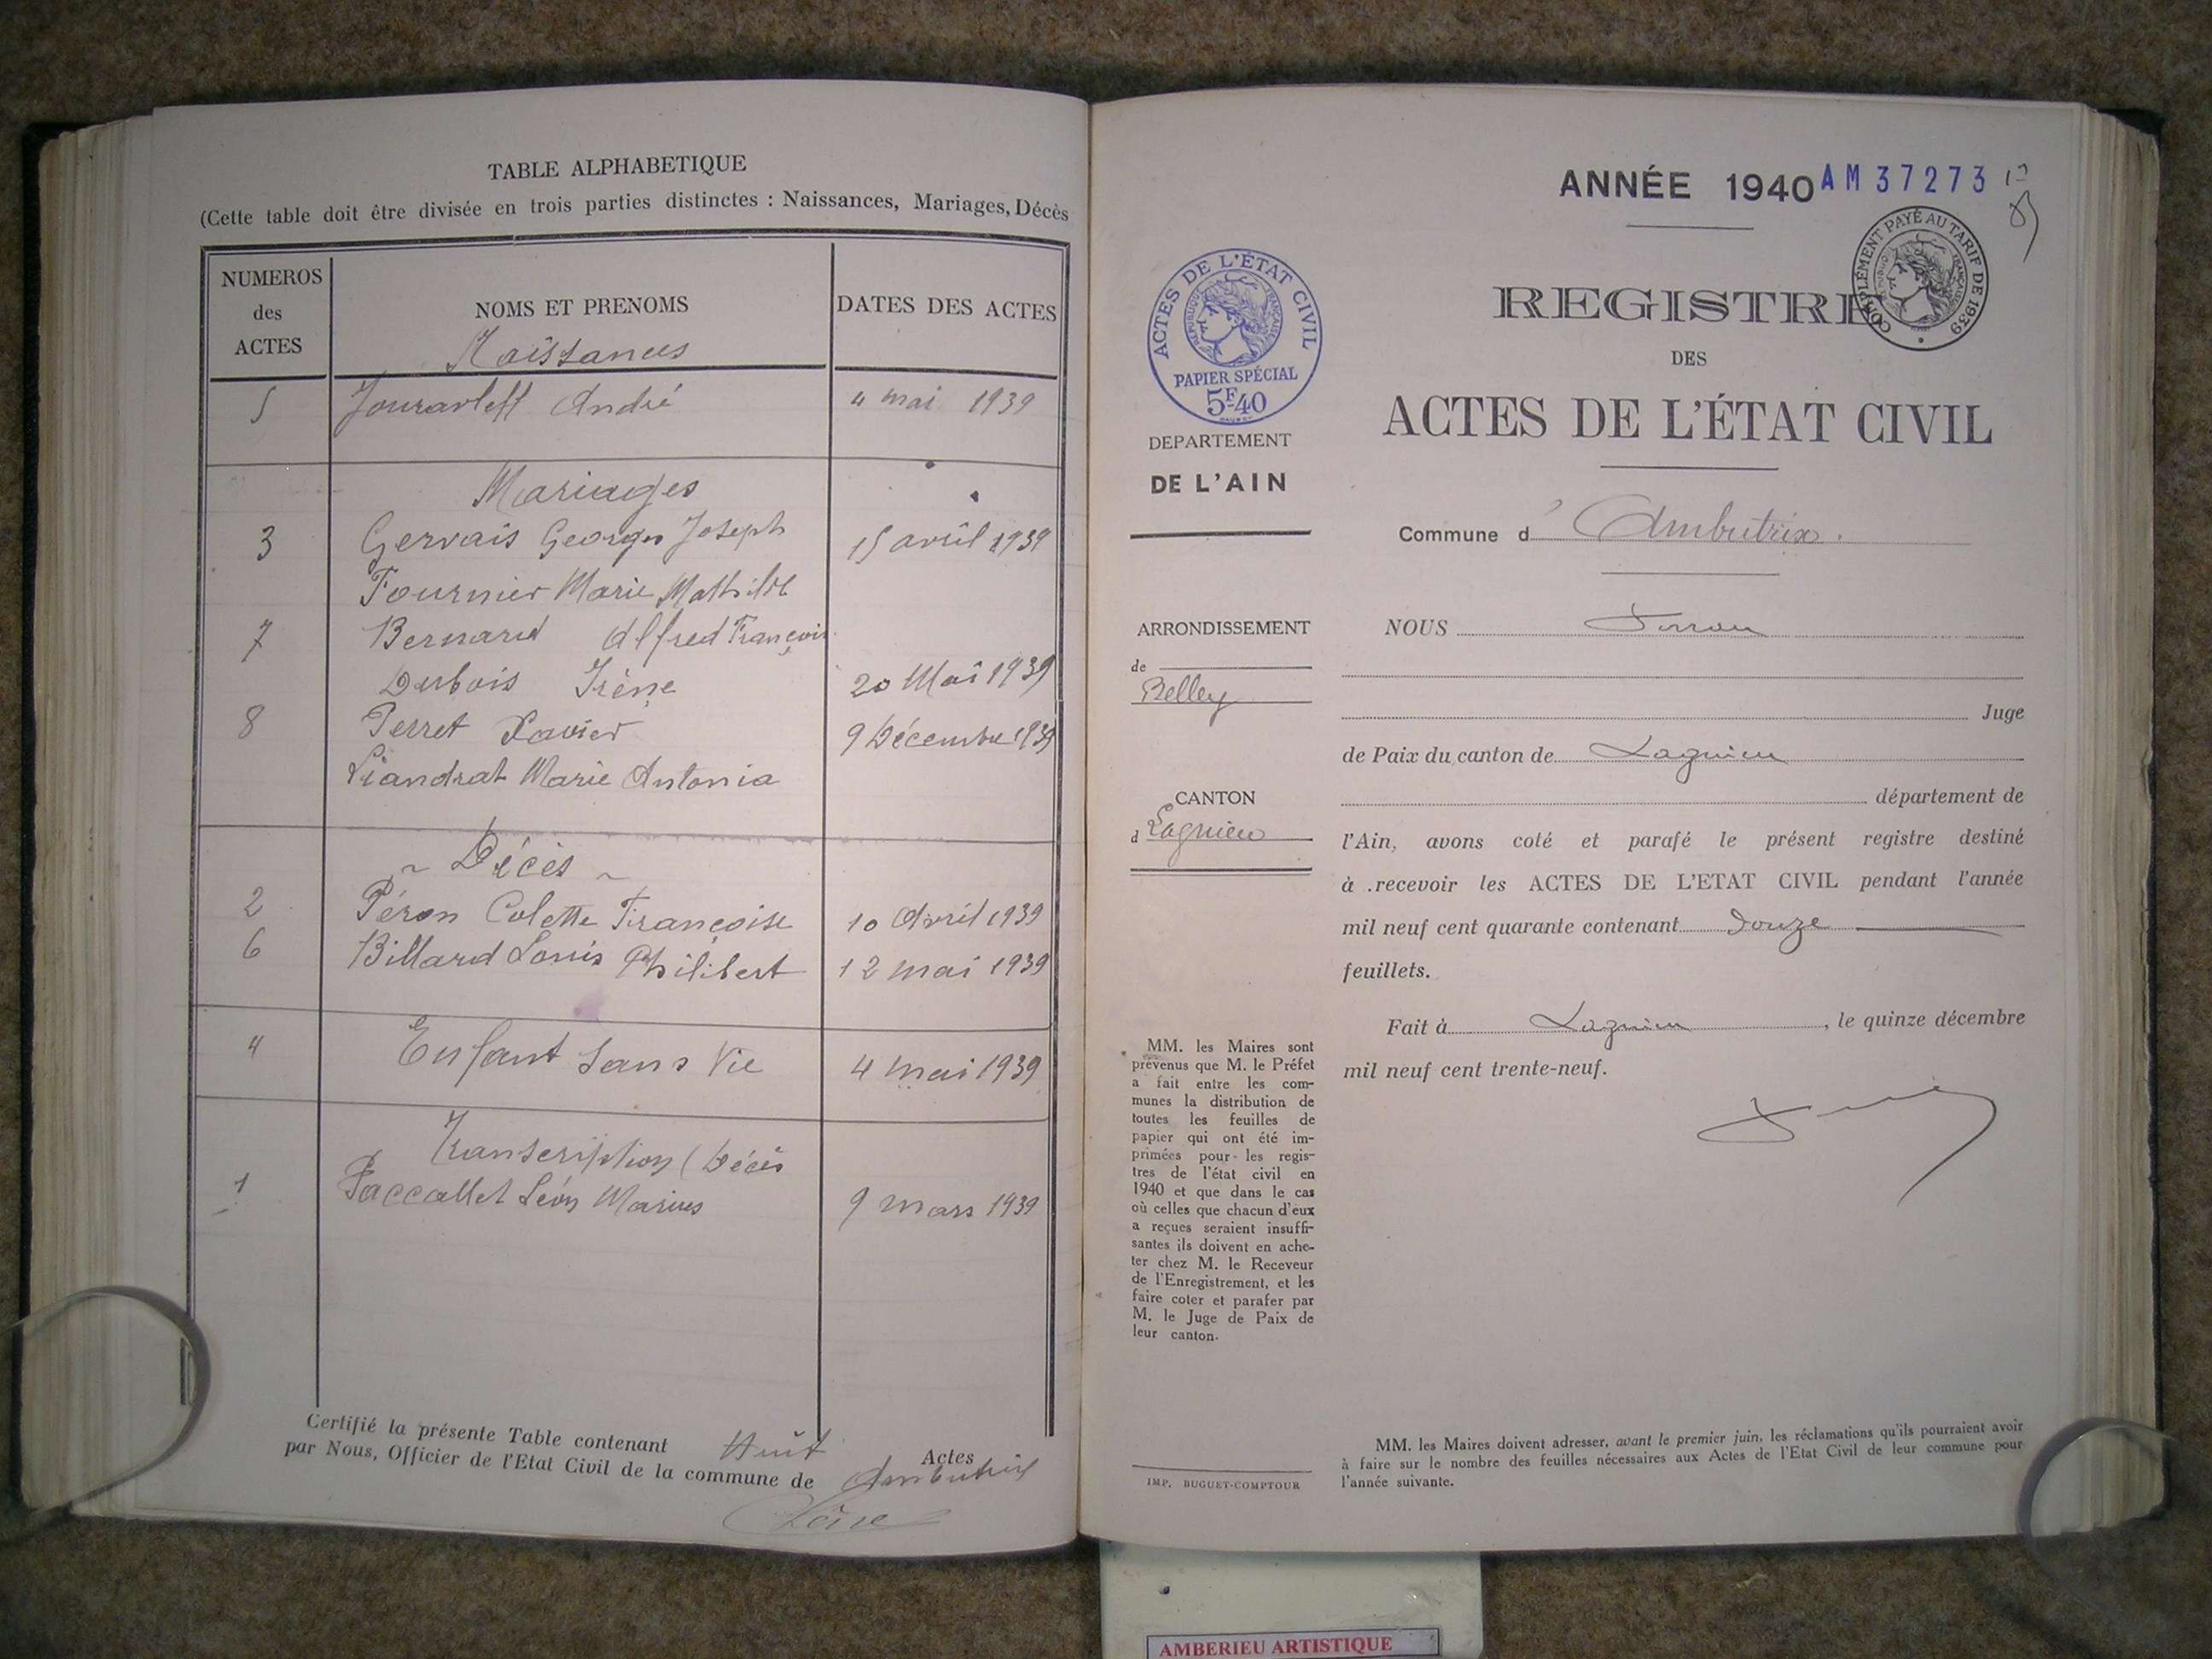 TABLE ALPHABETIQUE
(Cette table doit être divisée en trois parties distinctes : Naissances, Mariages, Décès
NUMEROS
des
ACTES
NOMS ET PRENOMS
DATES DES ACTES
Naissances
5 André 4 mai 1939
Mariages
3 Gervais Georges Joseph 15 avril 1939
Fournier Marie Mathilde
7 Bernard Alfred François
Dubois Irène 20 Mai 1939
8 Perret Xavier 9 Décembre 1939
Liandrat Marie Antonia
~ Décès ~
2 Péron Colette Françoise 10 Avril 1939
6 Billard Louis Philibert 12 mai 1939
4 Enfant Sans Vie 4 mai 1939
Transcription (Décès
1 Paccallet Léon Marius 9 mars 1939
Certifié la présente Table contenant Huit Actes
par Nous, Officier de l'Etat Civil de la commune de Ambutrix
ANNÉE 1940 AM 37273
COMPLÉMENT PAYÉ AU TARIF DE 1939
RÉPUBLIQUE FRANÇAISE
ACTES DE L'ÉTAT CIVIL
RÉPUBLIQUE FRANÇAISE
PAPIER SPÉCIAL
5F.40
REGISTRE
DES
ACTES DE L'ÉTAT CIVIL
DEPARTEMENT
DE L'AIN
Commune d' Ambutrix.
ARRONDISSEMENT
de
Belley
CANTON
d Lagnieu
NOUS
Juge
de Paix du canton de Lagnieu
département de
l'Ain, avons coté et parafé le présent registre destiné
à .recevoir les ACTES DE L'ETAT CIVIL pendant l'année
mil neuf cent quarante contenant douze
feuillets.
Fait à Lagnieu, le quinze décembre
mil neuf cent trente-neuf.
MM. les Maires sont
prévenus que M. le Préfet
a fait entre les com-
munes la distribution de
toutes les feuilles de
papier qui ont été im-
primées pour les regis-
tres de l'état civil en
1940 et que dans le cas
où celles que chacun d'eux
a reçues seraient insuffi-
santes ils doivent en ache-
ter chez M. le Receveur
de l'Enregistrement, et les
faire coter et parafer par
M. le Juge de Paix de
leur canton.
IMP. BUGUET-COMPTOUR
MM. les Maires doivent adresser, avant le premier juin, les réclamations qu'ils pourraient avoir
à faire sur le nombre des feuilles nécessaires aux Actes de l'Etat Civil de leur commune pour
l'année suivante.
AMBERIEU ARTISTIQUE